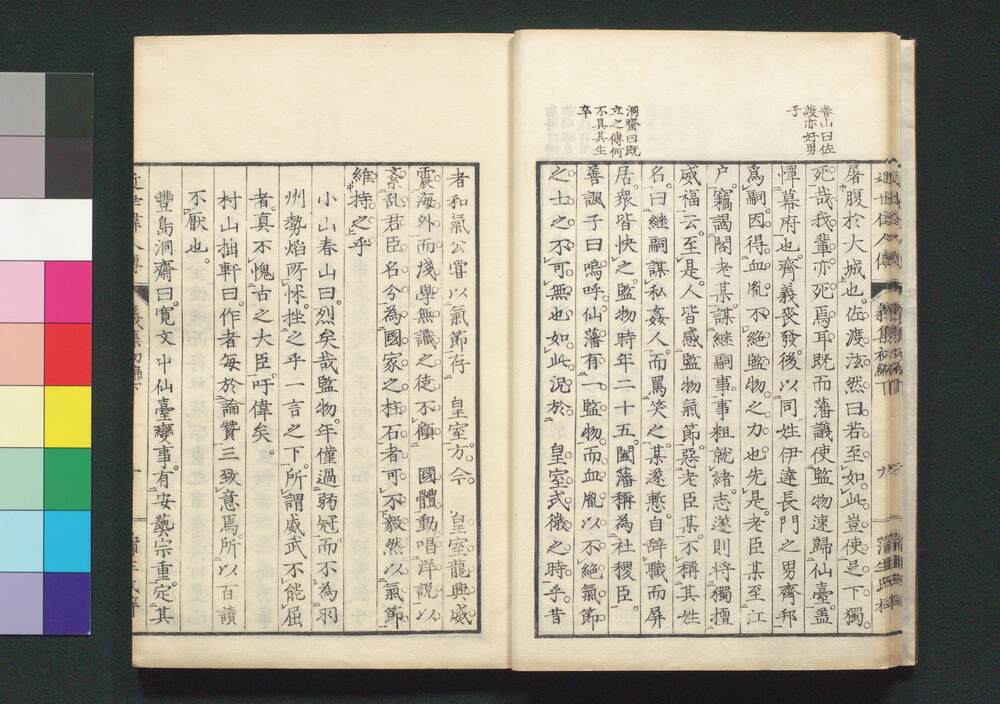 春山曰佐
渡亦好男
子
洞齋曰既
立之傳何
不具其生
卒
屠腹於大城也佐渡法然曰若至如此豈使足下獨
死哉我輩亦死焉耳既而藩議使監物速歸仙臺盖
憚幕府也齊義喪發後以同姓伊達長門之男齊邦
為嗣因得血胤不絕監物之力也先是老臣某至江
户竊謁閣老某謀繼嗣事事粗就緒志遂則將獨擅
威福云至是人皆感監物氣節惡老臣某不稱其姓
名曰繼嗣謀私姦人而罵笑之某遂慙自辭職而屏
居衆皆快之監物時年二十五闔藩稱為社稷臣
善諷子曰嗚呼仙藩有一監物而血胤以不絕氣節
之士之不可無也如此況於 皇室式微之時乎昔
者和氣公嘗以氣節存 皇室方今 皇室龍興威
震海外而淺學無識之徒不顧 國體動唱洋説以
紊乱君臣名分為國家之柱石者可不毅然以氣節
維持之乎
小山春山曰烈矣哉監物年僅過弱冠而不為羽
州勢焰所怵挫之乎一言之下所謂威武不能屈
者真不愧古之大臣吁偉矣
村山拙軒曰作者每於論贊三致意焉所以百讀
不厭也
豐島洞齋曰寬文中仙臺變事有安藝宗重定其